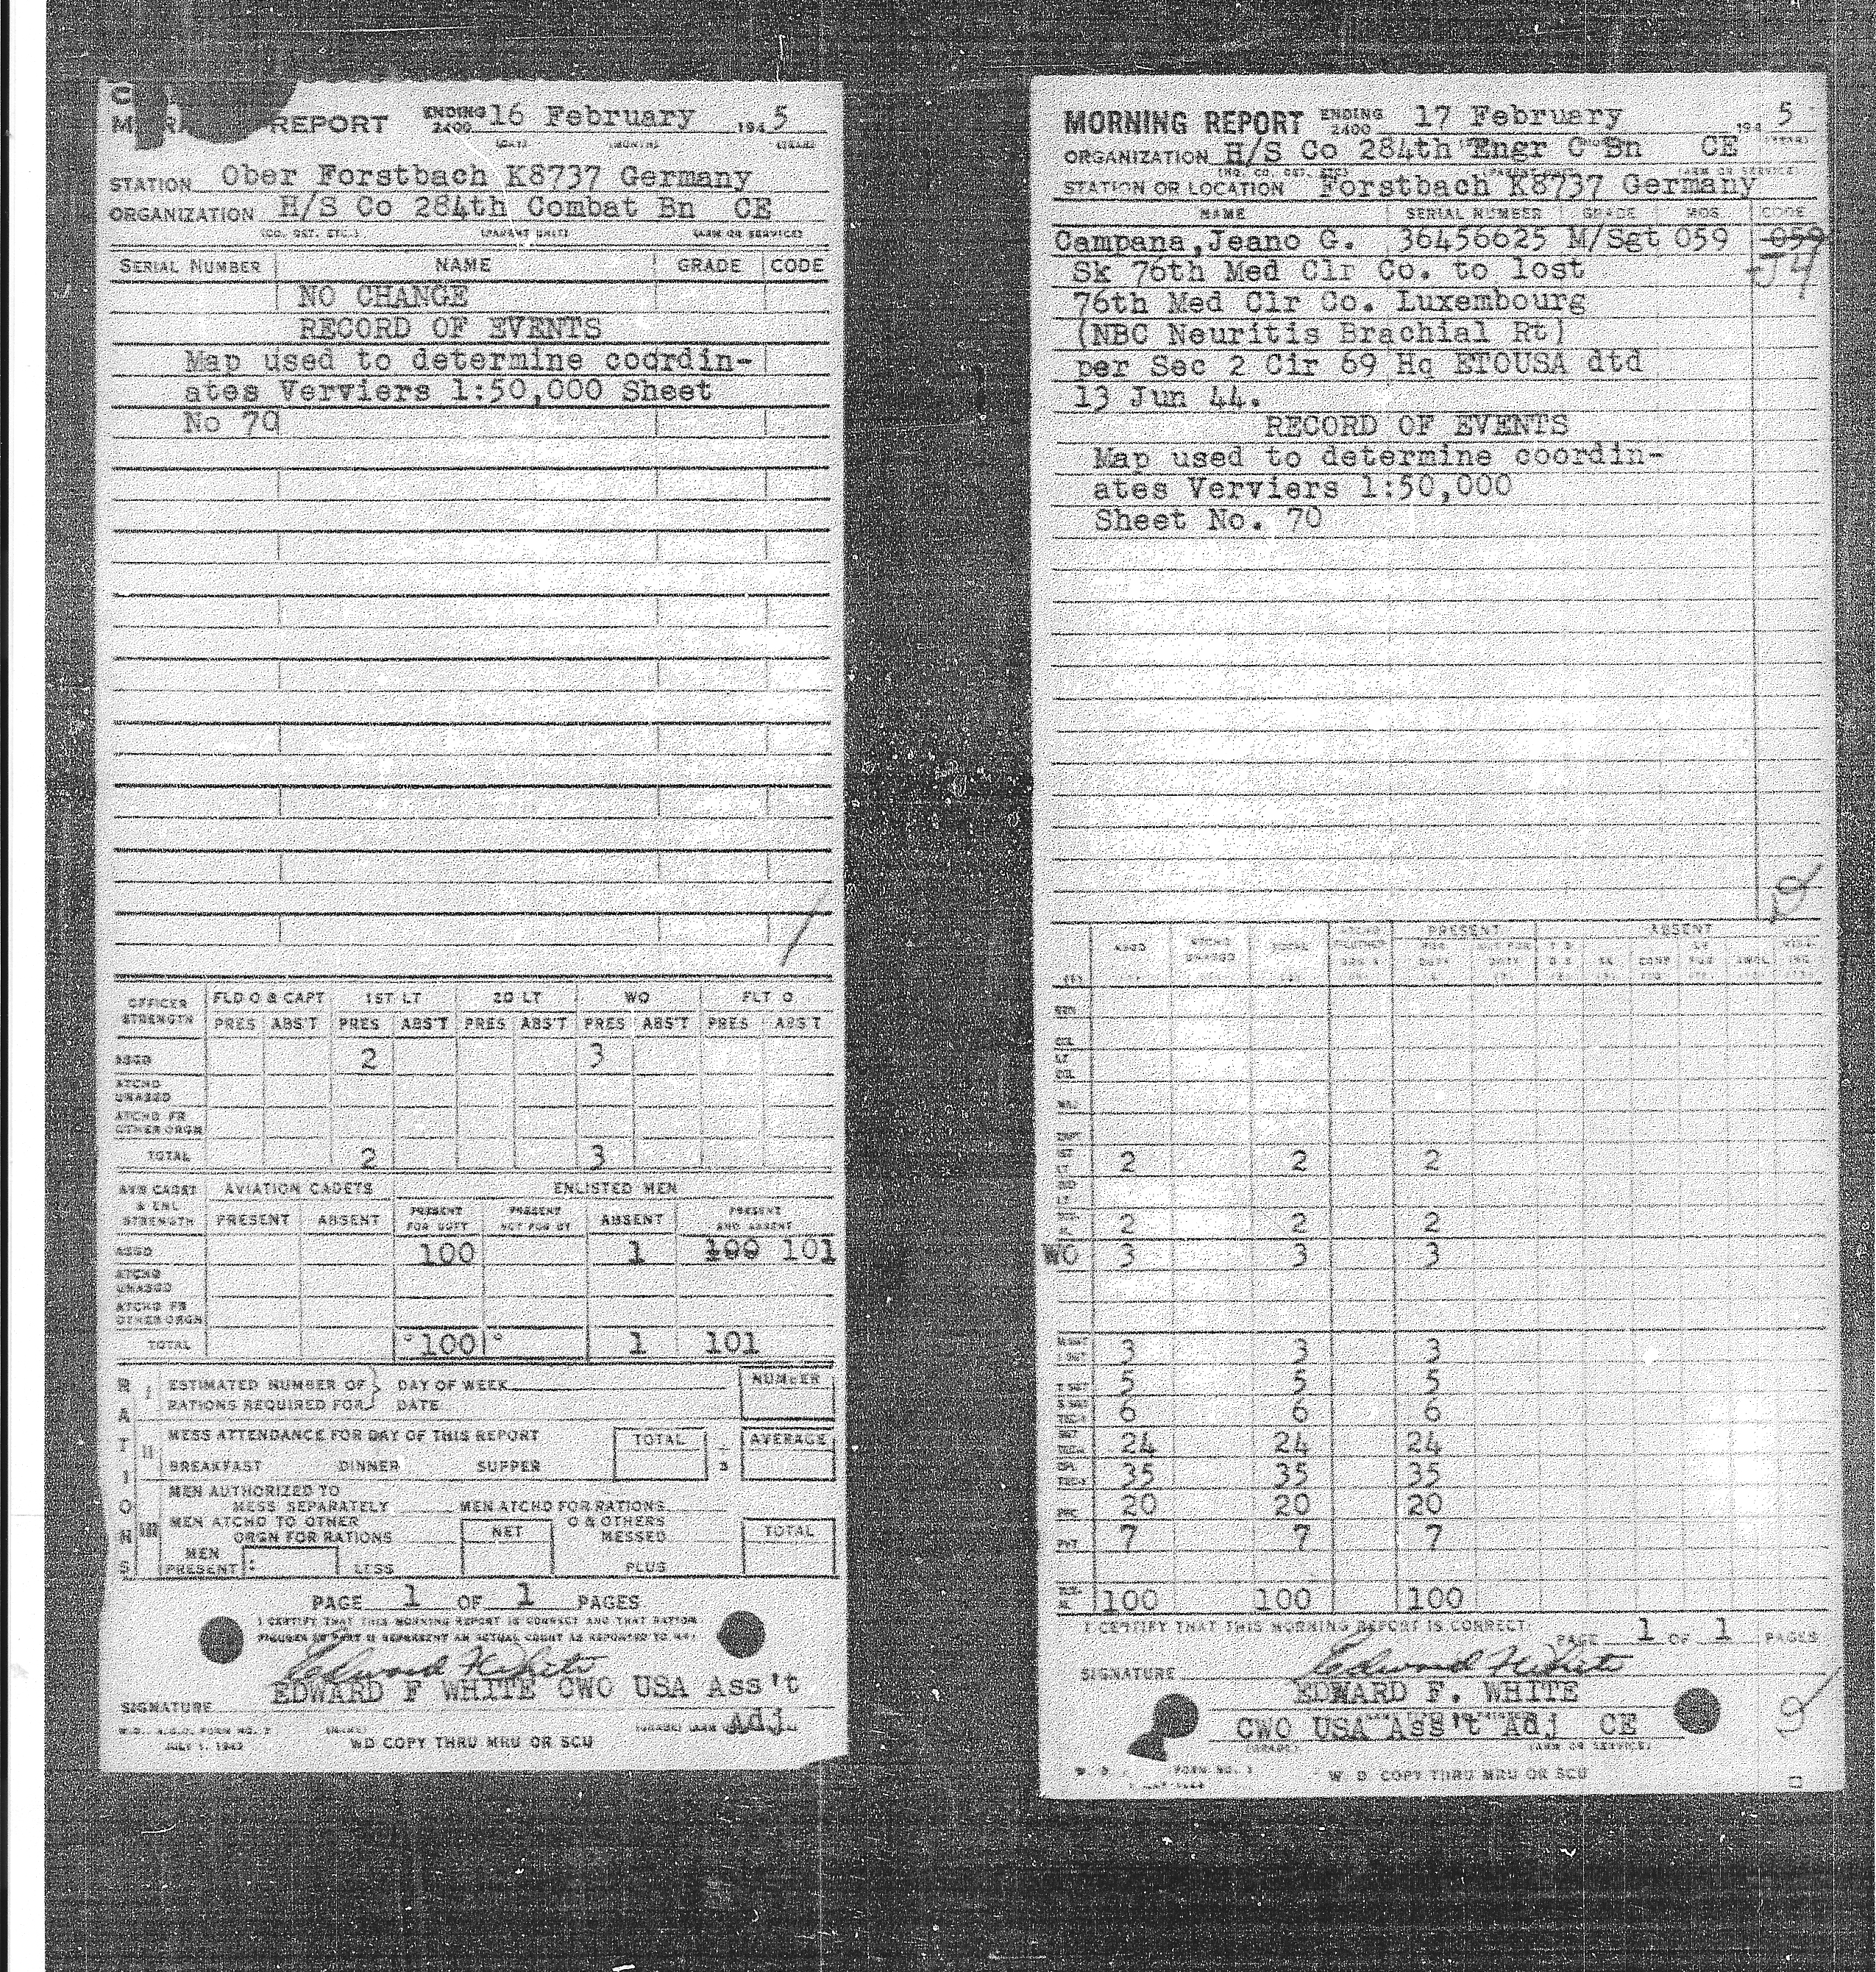 REPORT ENDING 2400 16 February 1945
(DAY) (MONTH) (YEAR)
STATION Ober Forstbach K8737 Germany
ORGANIZATION H/S Co 284th Combat Bn CE
(CO. DET. ETC.) (PARENT UNIT) (ARM OR SERVICE)
SERIAL NUMBER NAME GRADE CODE
NO CHANGE
RECORD OF EVENTS
Map used to determine coordin-
ates Verviers 1:50,000 Sheet
No 70
OFFICER STRENGTH FLD O & CAPT 1ST LT 2D LT WO FLT O
PRES ABS'T PRES ABS'T PRES ABS'T PRES ABS'T PRES ABS'T
ASGD 2 3
ATCHD UNASGD
ATCHD FR OTHER ORGN
TOTAL 2 3
AVN CADET & ENL STRENGTH AVIATION CADETS ENLISTED MEN
PRESENT ABSENT PRESENT FOR DUTY PRESENT NOT FOR DY ABSENT PRESENT AND ABSENT
ASGD 100 1 100 101
ATCHD UNASGD
ATCHD FR OTHER ORGN
TOTAL 100 1 101
RATIONS
I ESTIMATED NUMBER OF RATIONS REQUIRED FOR DAY OF WEEK DATE NUMBER
II MESS ATTENDANCE FOR DAY OF THIS REPORT TOTAL AVERAGE
BREAKFAST DINNER SUPPER 3
III MEN AUTHORIZED TO MESS SEPARATELY MEN ATCHD FOR RATIONS
MEN ATCHD TO OTHER ORGN FOR RATIONS NET O & OTHERS MESSED TOTAL
MEN PRESENT: LESS PLUS
PAGE 1 OF 1 PAGES
I CERTIFY THAT THIS MORNING REPORT IS CORRECT AND THAT RATION
FIGURES IN PART II REPRESENT AN ACTUAL COUNT AS REPORTED TO ME:
Edward F White
EDWARD F WHITE CWO USA Ass't
SIGNATURE Adj
W.D., A.G.O. FORM NO. (NAME)
JULY 1, 1943 WD COPY THRU MRU OR SCU
MORNING REPORT ENDING 2400 17 February 1945
ORGANIZATION H/S Co 284th Engr C Bn CE
STATION OR LOCATION Forstbach K8737 Germany
NAME SERIAL NUMBER GRADE MOS CODE
Campana,Jeano G. 36456625 M/Sgt 059 059
Sk 76th Med Clr Co. to lost J4
76th Med Clr Co. Luxembourg
(NBC Neuritis Brachial Rt)
per Sec 2 Cir 69 Hq ETOUSA dtd
13 Jun 44.
RECORD OF EVENTS
Map used to determine coordin-
ates Verviers 1:50,000
Sheet No. 70
PRESENT ABSENT
ASGD ATCHD UNASGD TOTAL
2 2 2
2 2 2
WO 3 3 3
3 3 3
5 5 5
6 6 6
24 24 24
35 35 35
20 20 20
PVT 7 7 7
100 100 100
I CERTIFY THAT THIS MORNING REPORT IS CORRECT: PAGE 1 OF 1 PAGES
SIGNATURE Edward F White
EDWARD F. WHITE
CWO USA Ass't Adj CE
(GRADE) (ARM OR SERVICE)
FORM NO. 1
W. D. COPY THRU MRU OR SCU